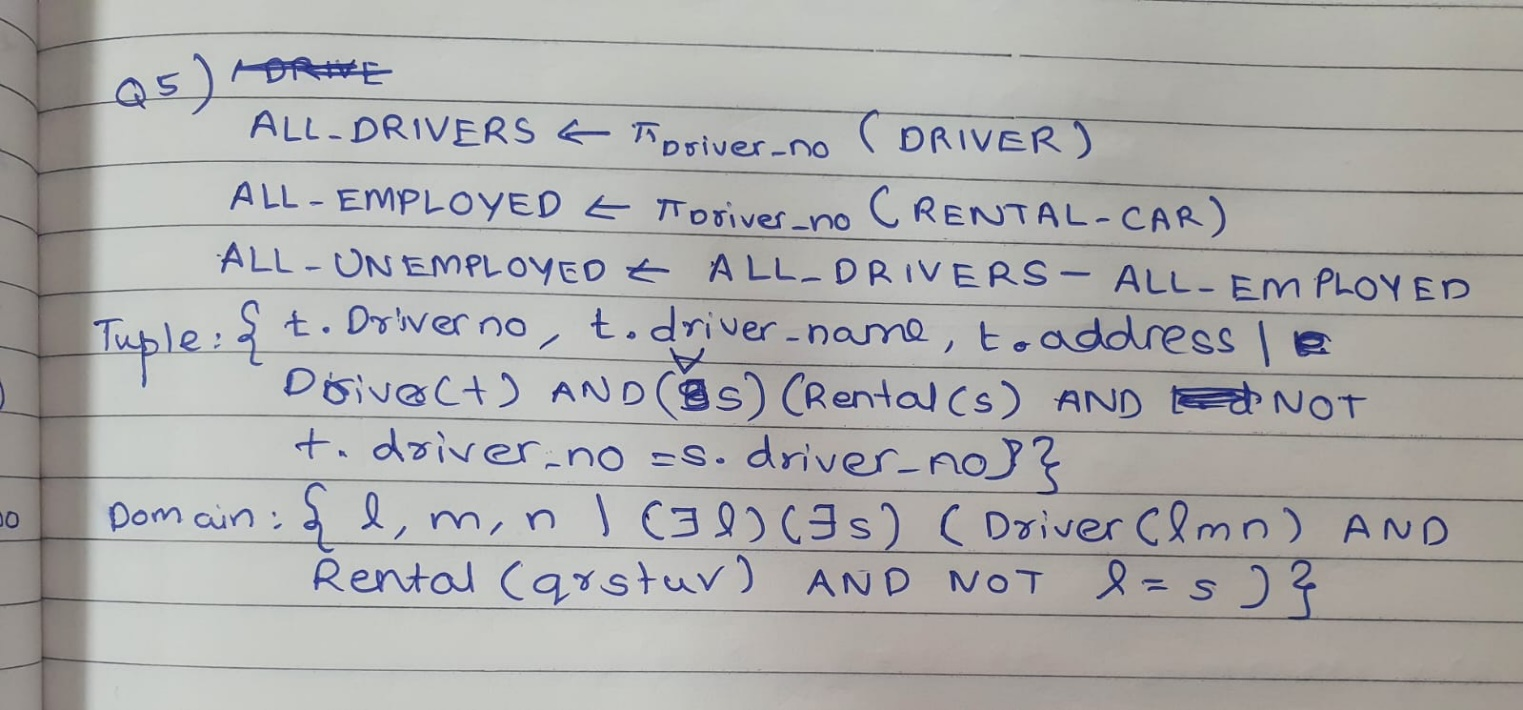 Q5)
ALL-DRIVERS ← π Driver-no (DRIVER)
ALL-EMPLOYED ← π Driver-no (RENTAL-CAR)
ALL-UNEMPLOYED ← ALL-DRIVERS - ALL-EMPLOYED
Tuple: { t.Driverno, t.driver-name, t.address |
Driver(t) AND (∀s) (Rental(s) AND NOT
t.driver-no = s.driver-no)}
Domain: { l, m, n | (∃l)(∃s) (Driver(lmn) AND
Rental (qrstuv) AND NOT l = s)}